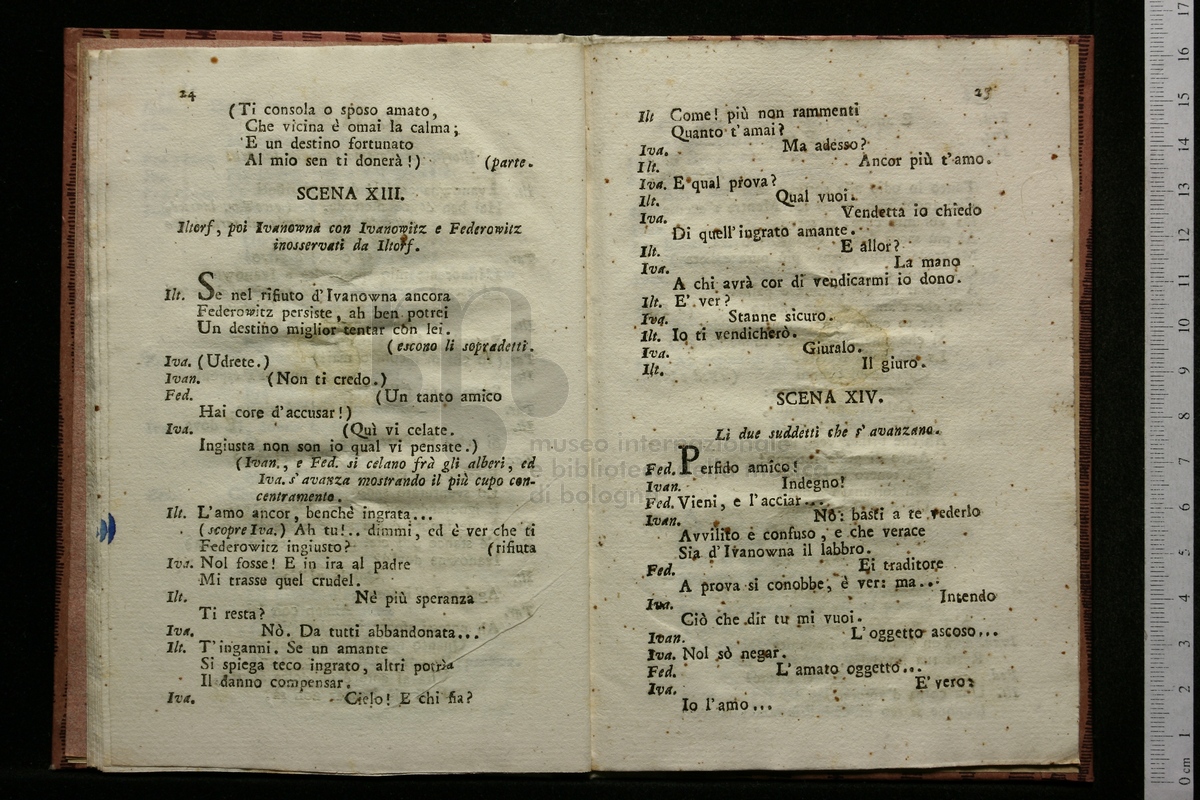 24
(Ti consola o sposo amato,
Che vicina è omai la calma;
E un destino fortunato
Al mio sen ti donerà!) (parte.
SCENA XIII.
Iltorf, poi Ivanowna con Ivanowitz e Federowitz
inosservati da Iltorf.
Ilt. Se nel rifiuto d'Ivanowna ancora
Federowitz persiste, ah ben potrei
Un destino miglior tentar con lei.
(escono li sopradetti.
Iva. (Udrete.)
Ivan. (Non ti credo.)
Fed. (Un tanto amico
Hai core d'accusar!)
Iva. (Quì vi celate.
Ingiusta non son io qual vi pensate.)
(Ivan., e Fed. si celano frà gli alberi, ed
Iva. s'avanza mostrando il più cupo con-
centramento.
Ilt. L'amo ancor, benchè ingrata...
(scopre Iva.) Ah tu!.. dimmi, ed è ver che ti
Federowitz ingiusto? (rifiuta
Iva. Nol fosse! E in ira al padre
Mi trasse quel crudel.
Ilt. Nè più speranza
Ti resta?
Iva. Nò. Da tutti abbandonata...
Ilt. T'inganni. Se un amante
Si spiega teco ingrato, altri potrìa
Il danno compensar.
Iva. Cielo! E chi fia?
25
Ilt Come! più non rammenti
Quanto t'amai?
Iva. Ma adesso?
Ilt. Ancor più t'amo.
Iva. E qual prova?
Ilt. Qual vuoi.
Iva. Vendetta io chiedo
Di quell'ingrato amante.
Ilt. E allor?
Iva. La mano
A chi avrà cor di vendicarmi io dono.
Ilt. E' ver?
Iva. Stanne sicuro.
Ilt. Io ti vendicherò.
Iva. Giuralo.
Ilt. Il giuro.
SCENA XIV.
Li due suddetti che s'avanzano.
Fed. Perfido amico!
Ivan. Indegno!
Fed. Vieni, e l'acciar...
Ivan. Nò: basti a te vederlo
Avvilito e confuso, e che verace
Sia d'Ivanowna il labbro.
Fed. Ei traditore
A prova si conobbe, è ver: ma...
Iva. Intendo
Ciò che dir tu mi vuoi.
Ivan. L'oggetto ascoso...
Iva. Nol sò negar.
Fed. L'amato oggetto...
Iva. E' vero:
Io l'amo...
museo internazionale
e biblioteca
di bologna
17
16
15
14
13
12
11
10
9
8
7
6
5
4
3
2
1
0 cm